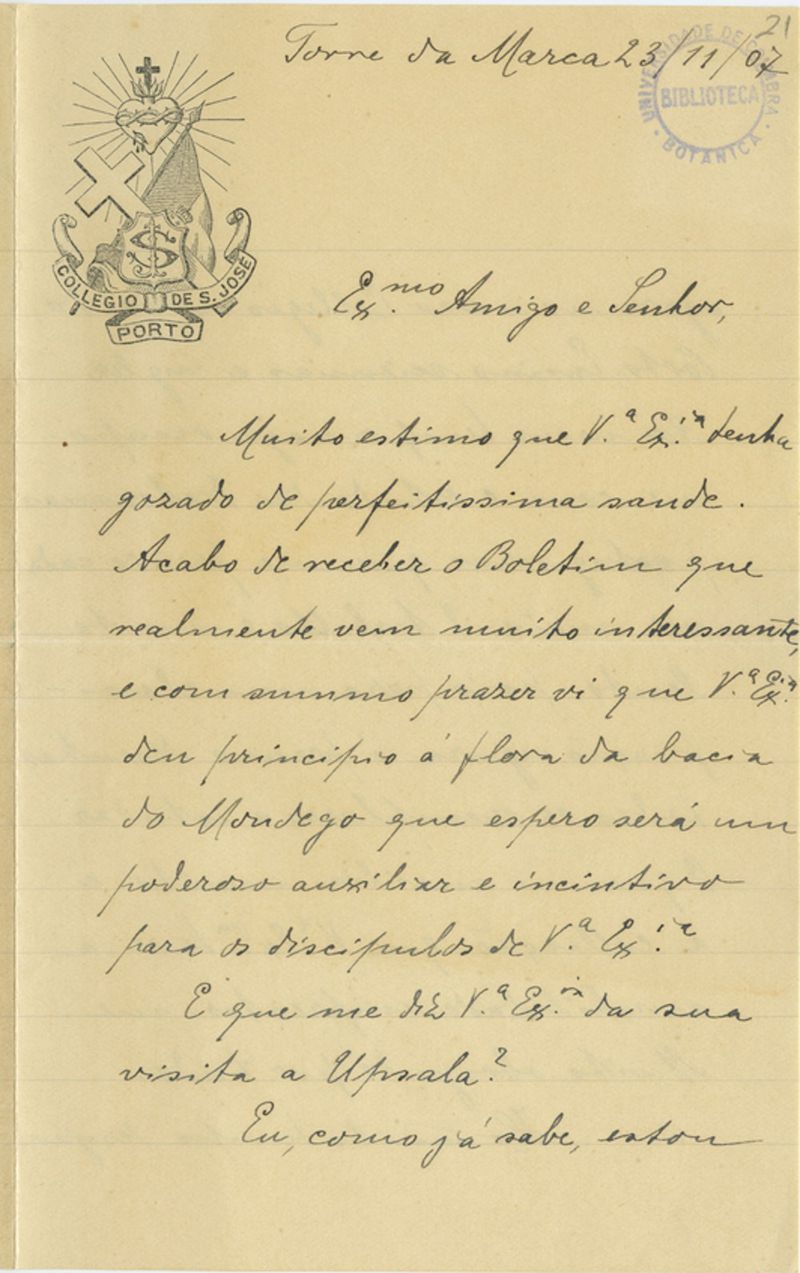 21
Torre da Marca 23/11/07
UNIVERSIDADE DE COIMBRA
BIBLIOTECA
BOTANICA
COLLEGIO DE S. JOSÉ
PORTO
Ex.mo Amigo e Senhor,
Muito estimo que V.ª Ex.ia tenha
gozado de perfeitissima saude.
Acabo de receber o Boletim que
realmente vem muito interessante,
e com summo prazer vi que V.ª Ex.ia
deu principio á flora da bacia
do Mondego que espero será um
poderoso auxiliar e incintivo
para os discipulos de V.ª Ex.ia
E que me diz V.ª Ex.ia da sua
visita a Upsala?
Eu, como já sabe, estou